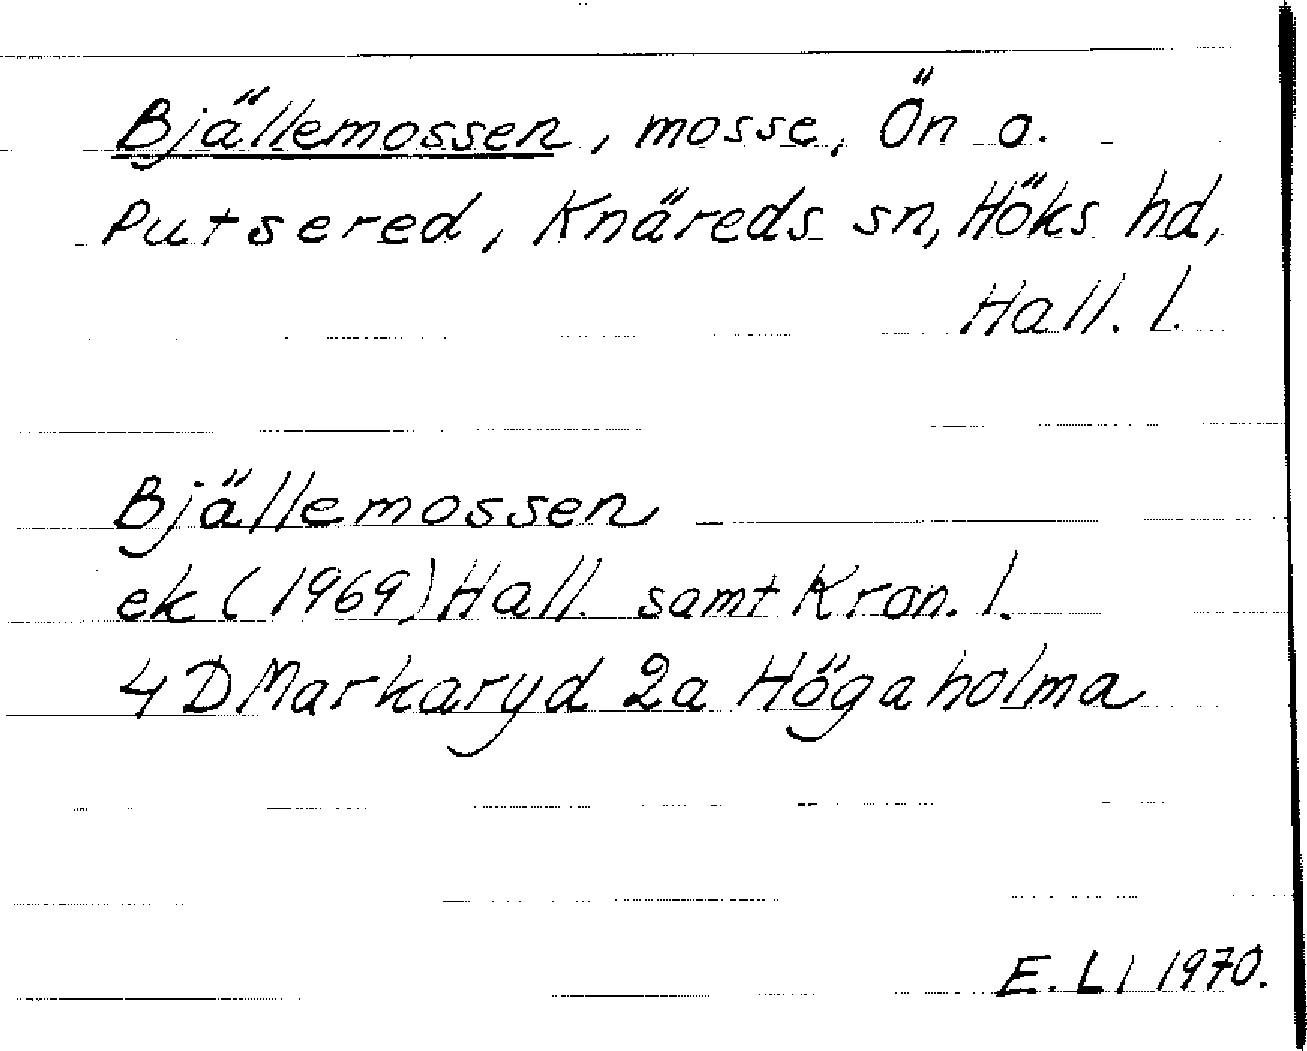 Bjällemossen, mosse, Ön o.
Putsered, Knäreds sn, Höks hd,
Hall. l.
Bjällemossen
ek (1969) Hall. samt Kron. l.
4 D Markaryd 2a Högaholma
E. Li 1970.